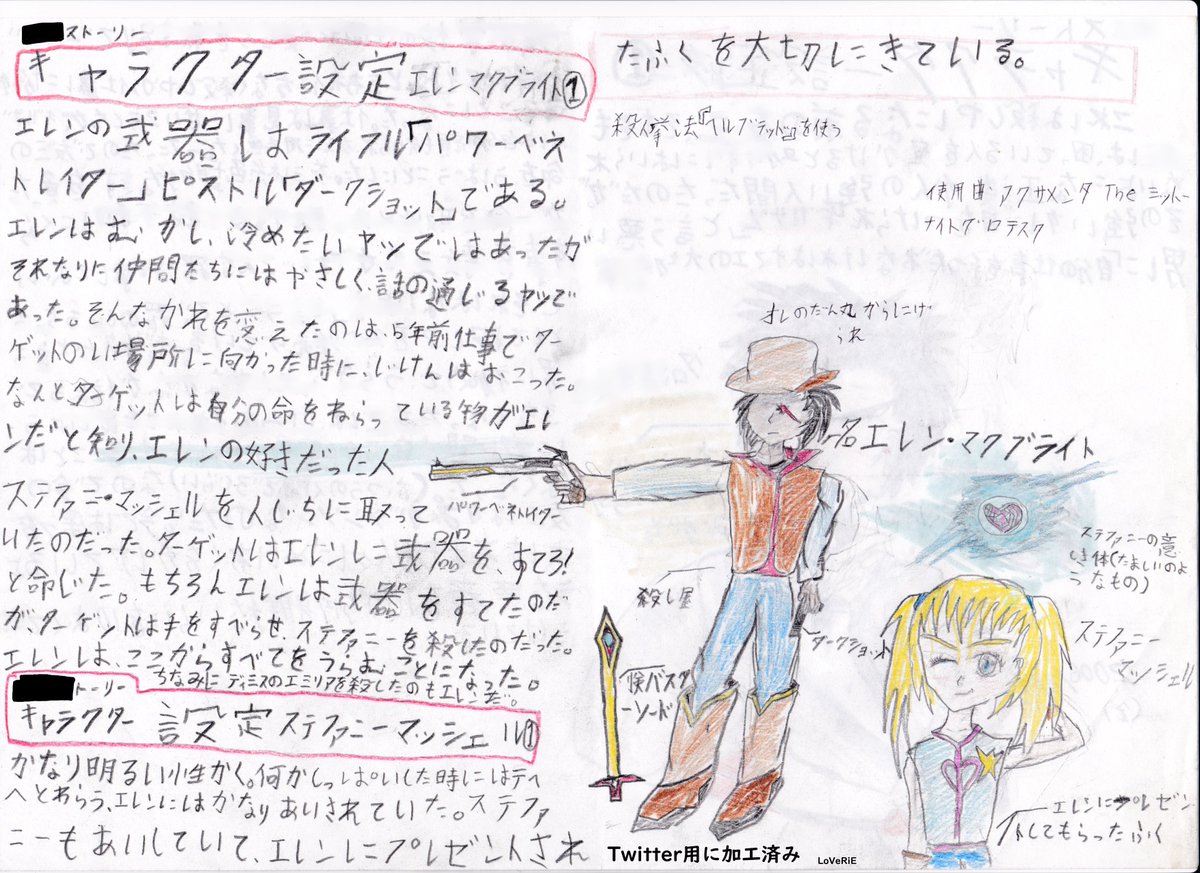 ストーリー
キャラクター設定エレンマクブライト①
エレンの武器はライフル「パワーベネ
トレイター」ピストル「ダークショット」である。
エレンはむかし、冷めたいヤツではあったが
それなりに仲間たちにはやさしく、話の通じるヤツで
あった。そんなかれを変えたのは、5年前仕事でター
ゲットのい場所に向かった時に、じけんはおこった。
なんとターゲットは自分の命をねらっている物がエレ
ンだと知り、エレンの好きだった人
ステファニーマッシェルを人じちに取って
いたのだった。ターゲットはエレンに武器を、すてろ!
と命じた。もちろんエレンは武器をすてたのだ
が、ターゲットは手をすべらせ、ステファニーを殺したのだった。
エレンは、ここからすべてをうらむことになった。
ちなみにディミスのエミリアを殺したのもエレンだ。
ストーリー
キャラクター設定ステファニーマッシェル①
かなり明るい性かく。何かしっぱいした時にはテヘ
ヘとわらう、エレンにはかなりあいされていた。ステファ
ニーもあいしていて、エレンにプレゼントされ
たふくを大切にきている。
殺人拳法『ヘルブラッド』を使う
使用曲 アクサメンタ The ミッドー
ナイトグロテスク
オレのだん丸からにげ
られ
名エレン・マクブライト
パワーベネトレイター
殺し屋
ダークショット
バスタ
ーソード
ステファニーの意
しき体(たましいのよ
うなもの)
ステファニー
マッシェル
エレンにプレゼン
トしてもらったふく
Twitter用に加工済み
LoVeRiE